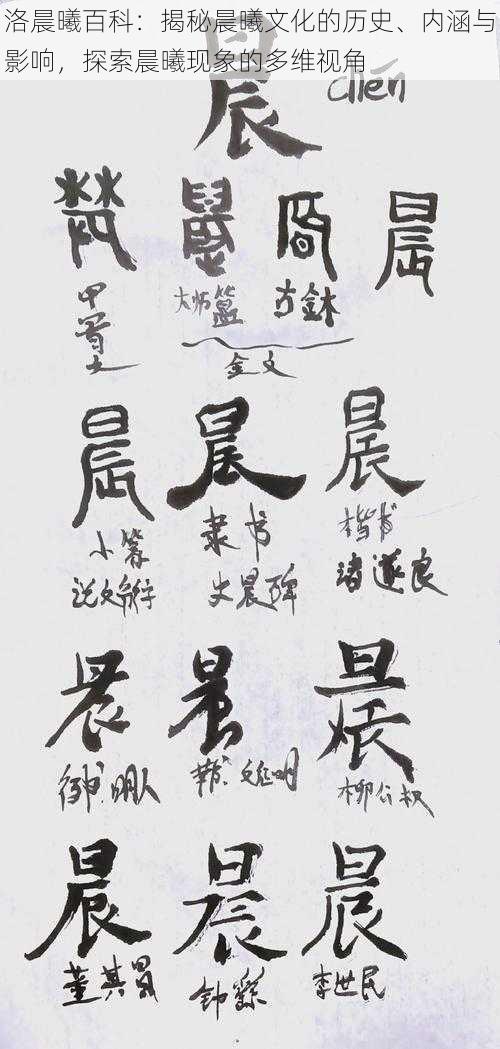 洛晨曦百科：揭秘晨曦文化的历史、内涵与
影响，探索晨曦现象的多维视角
晨 chen
晨 晨 晨 晨
甲骨文 大师簋 古鉢
金文
晨 晨 晨
小篆 隶书 楷书
说文解字 史晨碑 褚遂良
晨 晨 晨
行书 明人 文徵明 柳公权
晨 晨 晨
董其昌 钟繇 李世民